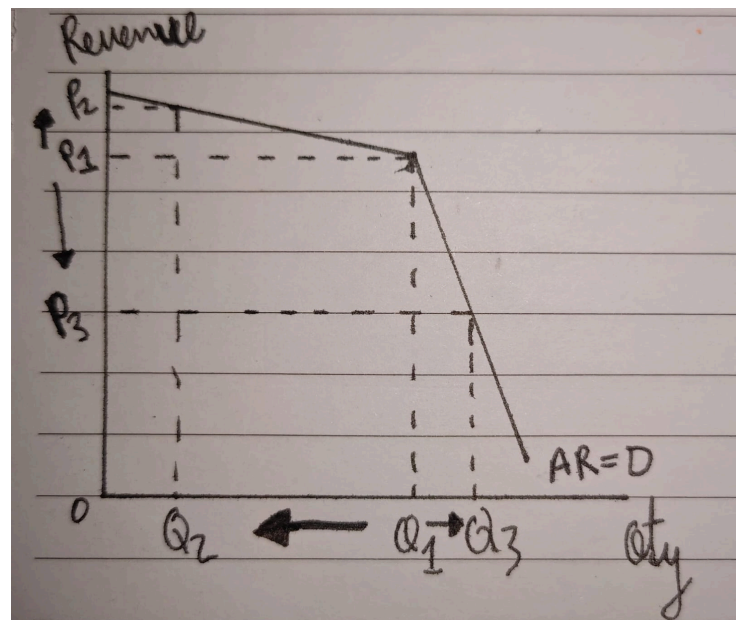 Revenue
P2
P1
P3
AR=D
0
Q2
Q1
Q3
Qty